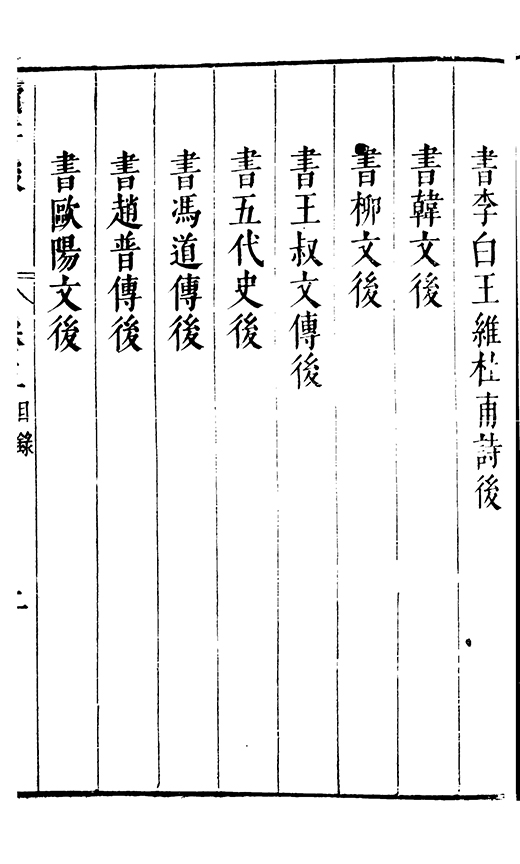 書李白王維杜甫詩後
書韓文後
書柳文後
書王叔文傳後
書五代史後
書馮道傳後
書趙普傳後
書歐陽文後
目錄